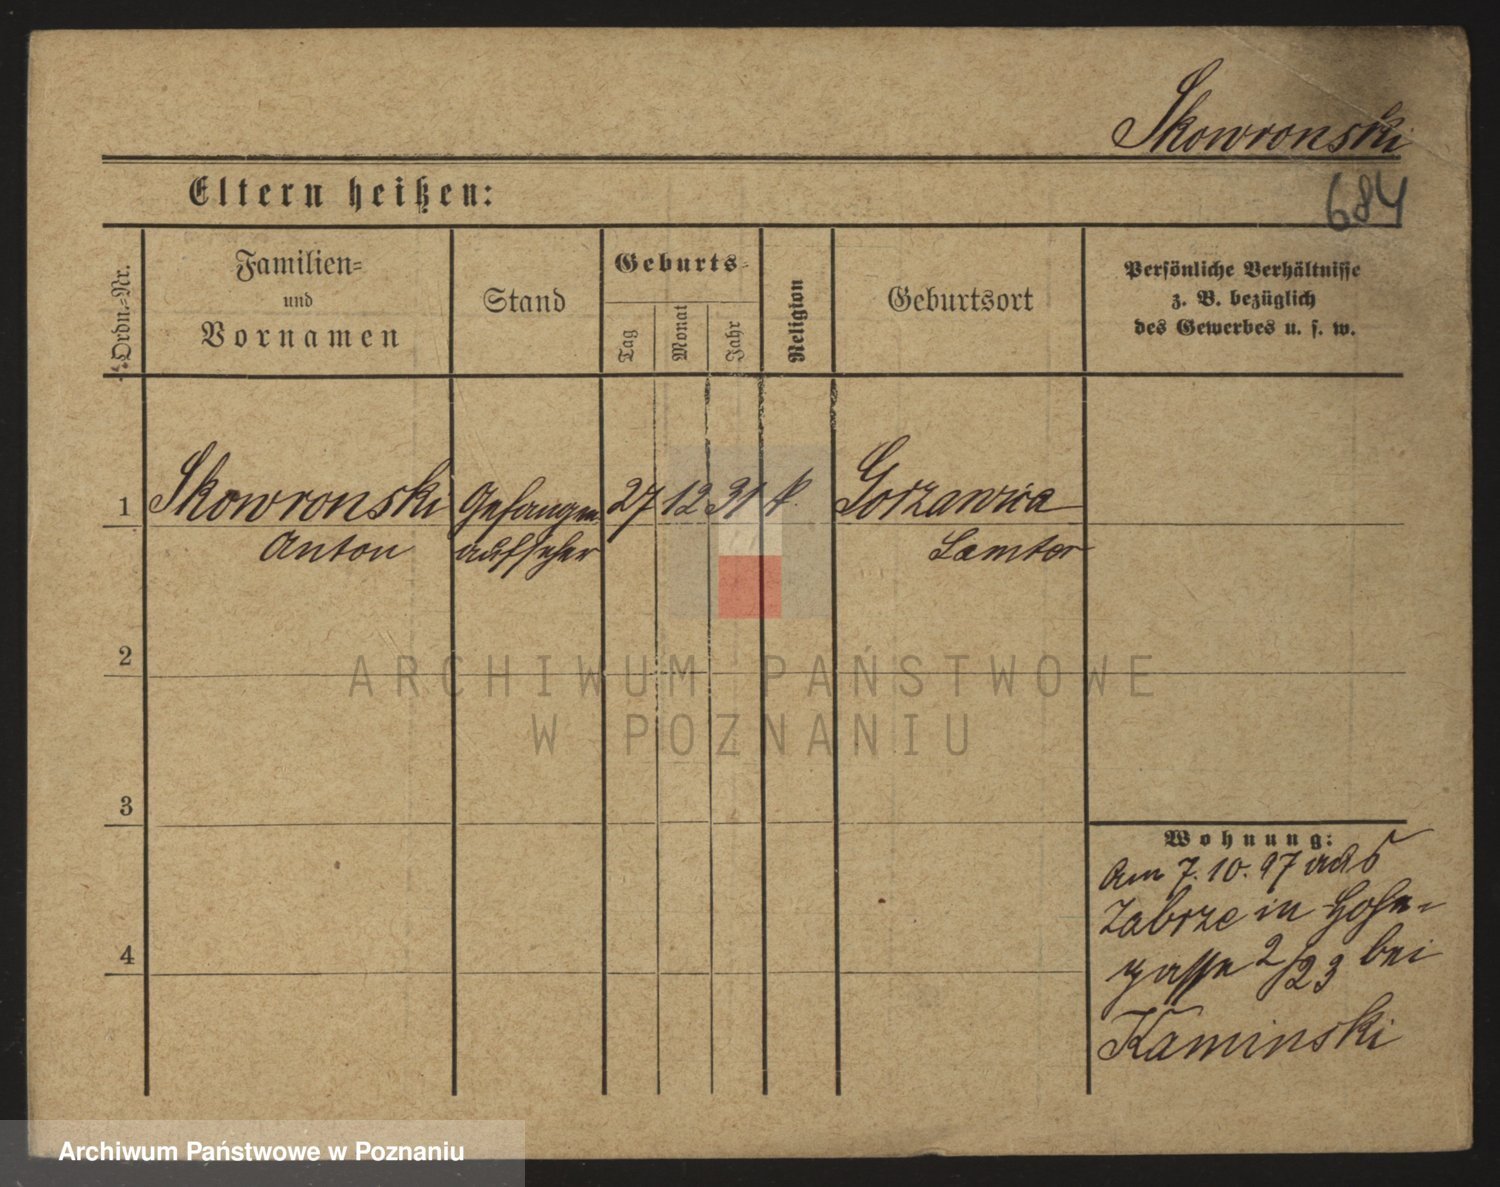 Skowronski
Eltern heißen:
684
Ordn.-Nr.
Familien-
und
Vornamen
Stand
Geburts-
Tag
Monat
Jahr
Religion
Geburtsort
Persönliche Verhältnisse
z. B. bezüglich
des Gewerbes u. s. w.
1
Skowronski
Anton
Gefangen
aufseher
27
12
31
k.
Gorzewice
Samter
2
ARCHIWUM PAŃSTWOWE
W POZNANIU
3
4
Wohnung:
Am 7.10.97 aus
Zabrze in Hohe-
gasse 2/23 bei
Kaminski
Archiwum Państwowe w Poznaniu